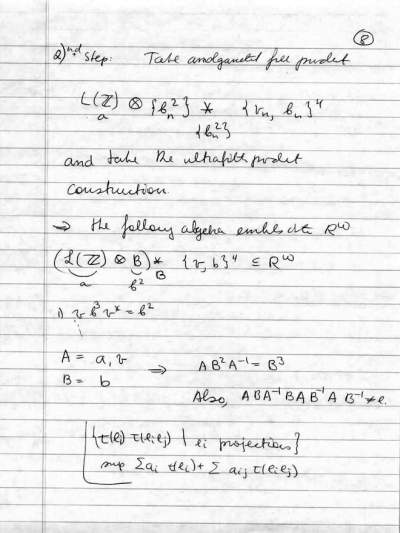 8
2)nd Step: Take amalgamated free product
L(ℤ) ⊗ {b_n^2} * {v_n, b_n}^4
a {b_n^2}
and take the ultrafilth product
construction.
⇒ the follong algebra embeds into R^ω
(L(ℤ) ⊗ B) *_B {v, b}^4 ⊆ R^ω
a b^2
1) v b^3 v* = b^2
A = a, v ⇒ A B^2 A^-1 = B^3
B = b
Also, A B A^-1 B A B^-1 A B^-1 ≠ e.
{τ(e_i) τ(e_i e_j) | e_i projections}
sup Σ a_i τ(e_i) + Σ a_ij τ(e_i e_j)